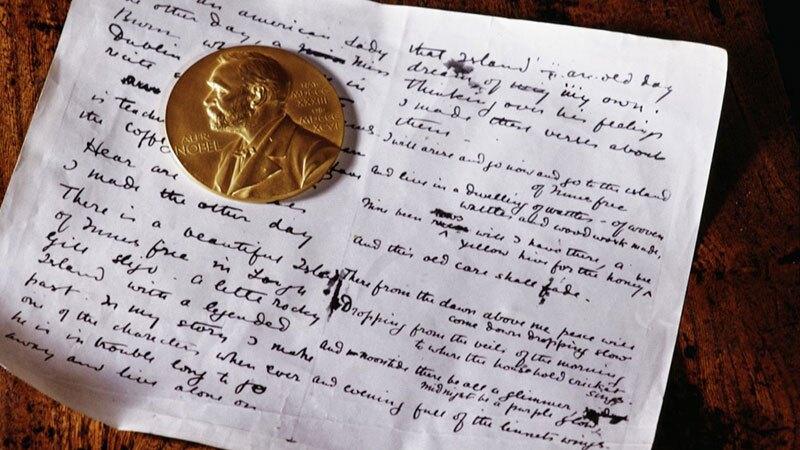 an american lady
the other day, a Miss
Burn
Dublin
recite
is teach
the coffee
Hear are
I made the other day
There is a beautiful Island
of Innis free in Lough
gill Sligo. A little rocky
Island with a legended
past. In my story I make
one of the characters when ever
he is in trouble long to go
away and live alone on
that Island an old day
dream of my own.
Thinking over his feelings
I made these verses about
them
I will arise and go now and go to the island
of Innis free
and live in a dwelling of wattles – of woven
wattles and wood work made,
Nine bean will I have there, a
yellow hive for the honey
And this old care shall fade.
There from the dawn above me peace will
come down dropping slow
Dropping from the veils of the morning
to where the household cricket sings
and noontide there be all a glimmer,
midnight be a purple glow
and evening full of the linnets wings.
ALFR.
NOBEL
NAT.
MDCCC
XXXIII
OB.
MDCCC
XCVI